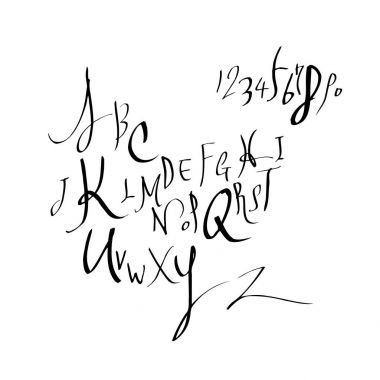 1234567890
ABC
DEFGHI
JKLM
NOPQRST
UVWXYZ